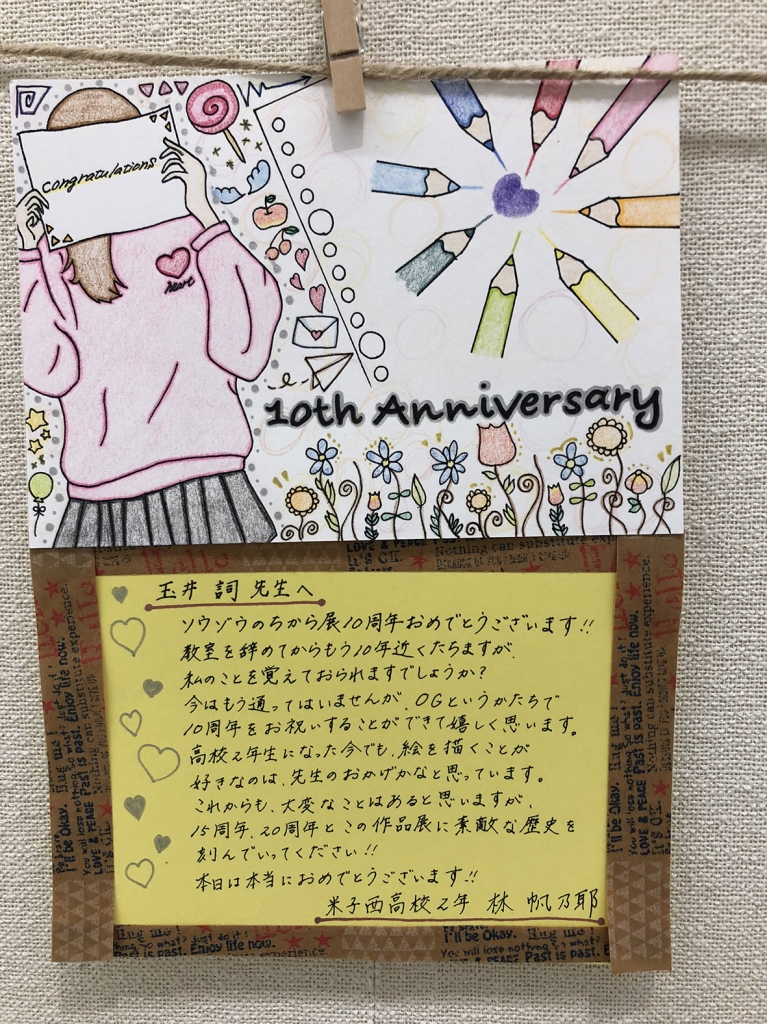 congratulations
heart
10th Anniversary
玉井 詞 先生へ
ソウゾウのちから展10周年おめでとうございます!!
教室を辞めてからもう10年近くたちますが、
私のことを覚えておられますでしょうか?
今はもう通ってはいませんが、OGというかたちで
10周年をお祝いすることができて嬉しく思います。
高校2年生になった今でも、絵を描くことが
好きなのは、先生のおかげかなと思っています。
これからも、大変なことはあると思いますが、
15周年、20周年とこの作品展に素敵な歴史を
刻んでいってください!!
本日は本当におめでとうございます!!
米子西高校2年 林 帆乃耶
LOVE & PEACE
Nothing can substitute experience.
I'll be Okay.
You will lose nothing
Past is past. Enjoy life now.
So what?
just do it!
Hug me!
It's OK